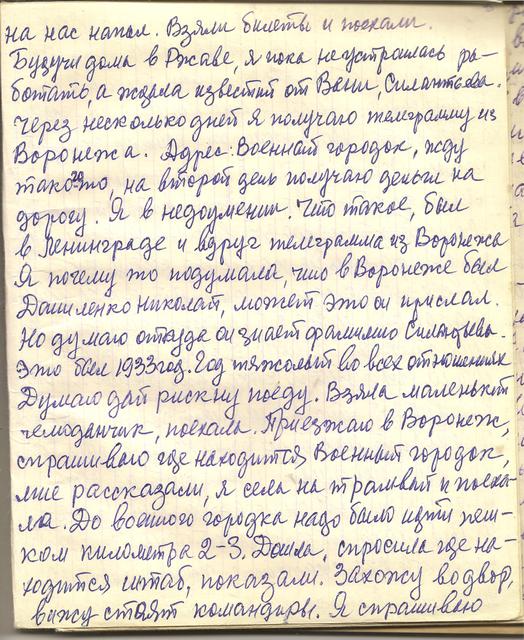 на нас напал. Взяли билеты и поехали.
Будучи дома в Ржаве, я пока не устроилась ра-
ботать, а ждала известий от Вани, Силантьева.
Через несколько дней я получаю телеграмму из
Воронежа. Адрес: Военный городок, жду
такого-то, на второй день получаю деньги на
дорогу. Я в недоумении. Что такое, был
в Ленинграде и вдруг телеграмма из Воронежа
Я почему то подумала, что в Воронеже был
Даниленко Николай, может это он прислал.
Но думаю откуда он знает фамилию Силантьева.
Это был 1933 год. Год тяжолый во всех отношениях
Думаю дай рискну поеду. Взяла маленький
чемоданчик, поехала. Приезжаю в Воронеж,
спрашиваю где находится Военный городок,
мне рассказали, я села на трамвай и поеха-
ла. До военого городка надо было идти пеш-
ком километра 2-3. Дошла, спросила где на-
ходится штаб, показали. Захожу во двор,
вижу стоят командиры. Я спрашиваю